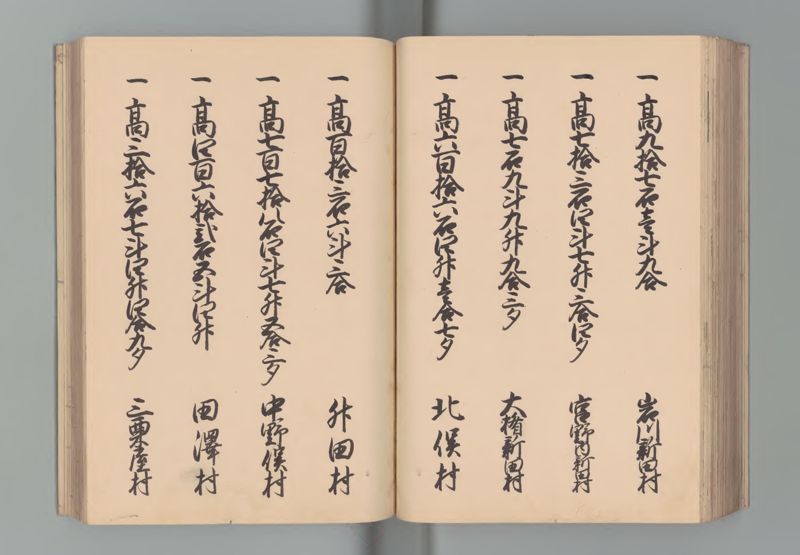 一 高九拾七石壱斗九合 岩川新田村
一 高七拾三石四斗七升三合四夕 宮野村新田村
一 高七石九斗九升九合三夕 大橋新田村
一 高六百拾六石四升壱合七夕 北俣村
一 高百拾三石六斗三合 舛田村
一 高七百七拾八石四斗七升五合三夕 中野俣村
一 高四百六拾弐石五斗四升 田澤村
一 高三拾六石七斗四升四合九夕 三栗屋村